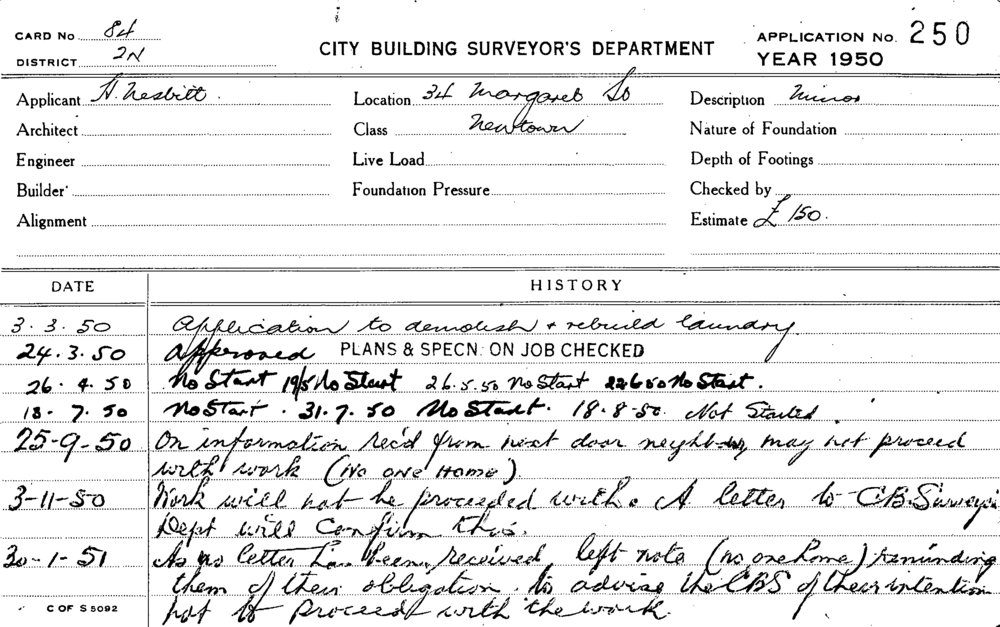 CARD No 84
DISTRICT 2N
CITY BUILDING SURVEYOR'S DEPARTMENT
APPLICATION No. 250
YEAR 1950
Applicant H. Nesbitt.
Location 34 Margaret St
Description Minor
Architect
Class Newtown
Nature of Foundation
Engineer
Live Load
Depth of Footings
Builder
Foundation Pressure
Checked by
Alignment
Estimate £150.
DATE HISTORY
3.3.50 Application to demolish & rebuild laundry
24.3.50 Approved PLANS & SPECN. ON JOB CHECKED
26.4.50 No Start 19/5 No Start 26.5.50 No Start No Start.
18.7.50 No Start. 31.7.50 No Start. 18.8.50. Not Started
25-9-50 On information rec'd from next door neighbour, may not proceed
with work (No one Home).
3-11-50 Work will not be proceeded with. A letter to C.B. Surveyor
Dept will confirm this.
30-1-51 As no letter has been received left note (no one home) reminding
them of their obligation to advise the CBS of their intention
not to proceed with the work.
C OF S 5092